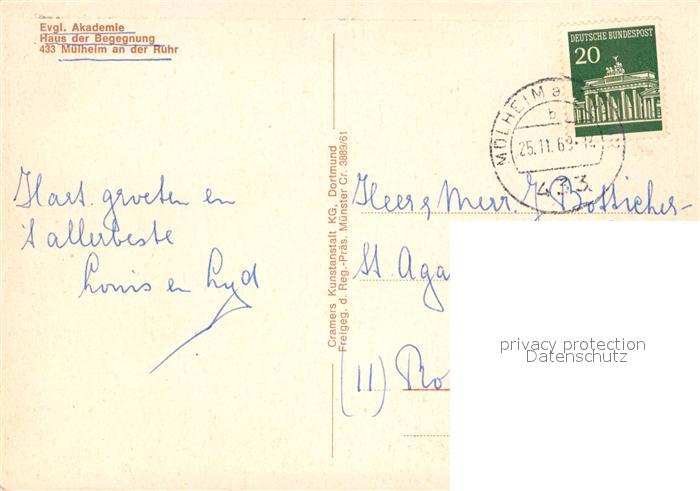 Evgl. Akademie
Haus der Begegnung
433 Mülheim an der Ruhr
Hart. groeten en
't allerbeste
Louis en Lyd
Cramers Kunstanstalt KG, Dortmund
Freigeg. d. Reg.-Präs. Münster Cr. 3889/61
DEUTSCHE BUNDESPOST
20
MÜLHEIM a
b
25.11.69
433
Heer & Mevr. Botticher-
St. Aga
(11) Ro
privacy protection
Datenschutz